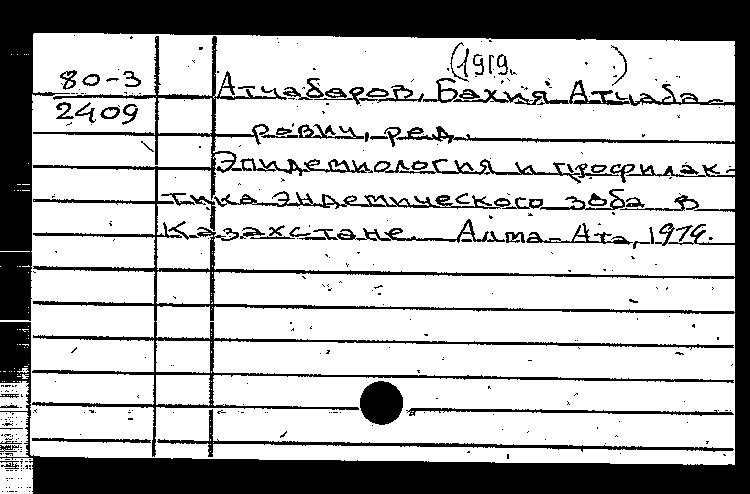 (1919. )
80-3 Атчабаров, Бахия Атчаба-
2409 рович, ред.
Эпидемиология и профилак-
тика эндемического зоба в
Казахстане. Алма-Ата, 1979.